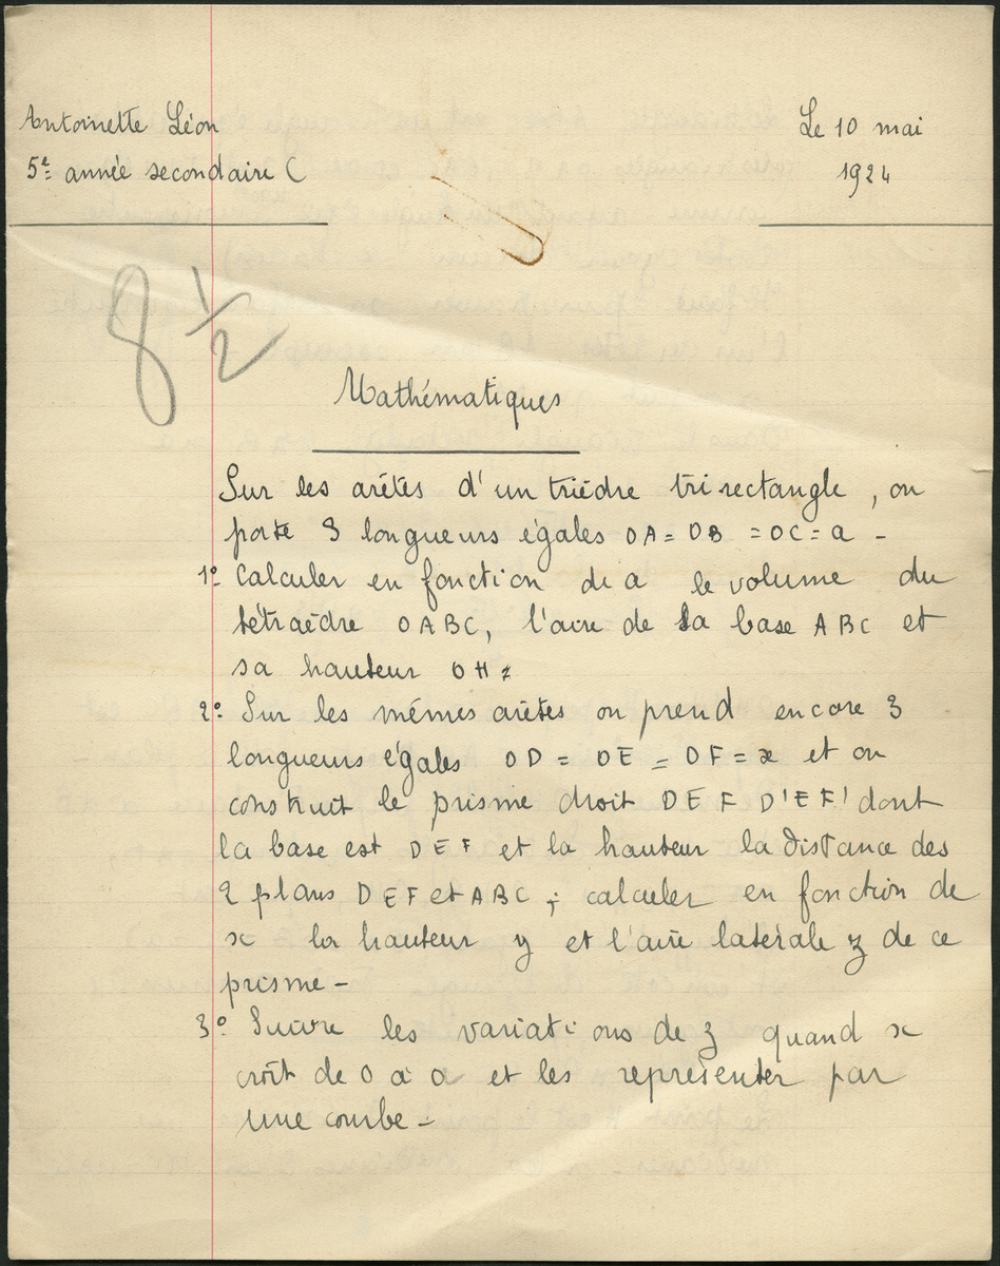 Antoinette Léon
5e année secondaire C
Le 10 mai
1924
8 1/2
Mathématiques
Sur les arêtes d'un trièdre trirectangle, on
porte 3 longueurs égales OA = OB = OC = a -
1° Calculer en fonction de a le volume du
tétraèdre OABC, l'aire de la base ABC et
sa hauteur OH.
2° Sur les mêmes arêtes on prend encore 3
longueurs égales OD = OE = OF = x et on
construit le prisme droit DEF D'E'F' dont
la base est DEF et la hauteur la distance des
2 plans DEF et ABC ; calculer en fonction de
x la hauteur y et l'aire latérale z de ce
prisme -
3° Suivre les variations de z quand x
croît de 0 à a et les représenter par
une courbe -